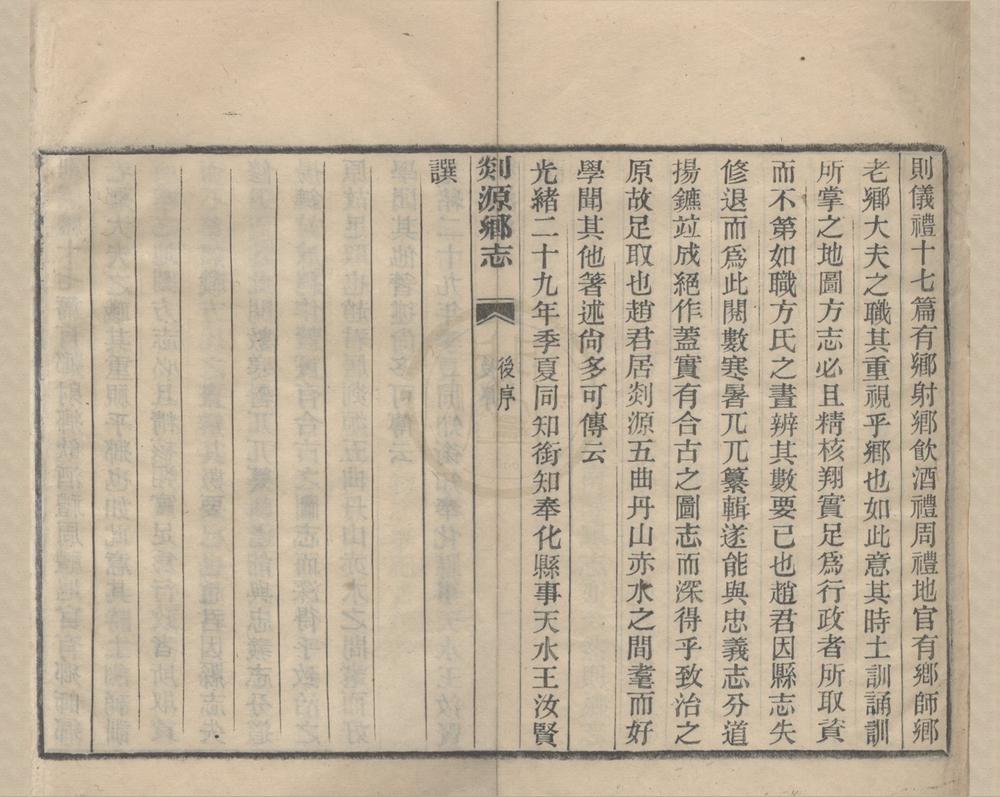 則儀禮十七篇有鄉射鄉飮酒禮周禮地官有鄉師鄉
老鄉大夫之職其重視乎鄉也如此意其時土訓誦訓
所掌之地圖方志必且精核翔實足爲行政者所取資
而不第如職方氏之晝辨其數要已也趙君因縣志失
修退而爲此閱數寒暑兀兀纂輯遂能與忠義志分道
揚鑣竝成絕作蓋實有合古之圖志而深得乎致治之
原故足取也趙君居剡源五曲丹山赤水之間耄而好
學聞其他著述尙多可傳云
光緒二十九年季夏同知銜知奉化縣事天水王汝賢
剡源鄉志
後序
譔